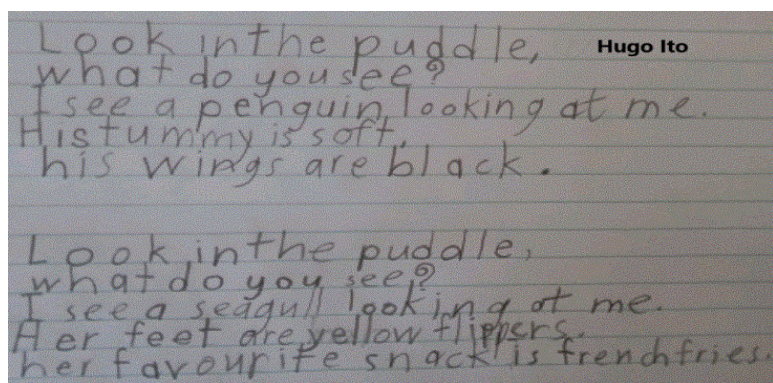 Look in the puddle, Hugo Ito
what do you see?
I see a penguin looking at me.
His tummy is soft,
his wings are black.
Look in the puddle,
what do you see?
I see a seagull looking at me.
Her feet are yellow flippers.
her favourite snack is french fries.